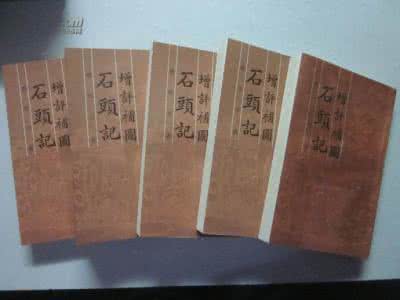 增評補圖
石頭記
增評補圖
石頭記
增評補圖
石頭記
增評補圖
石頭記
增評補圖
石頭記